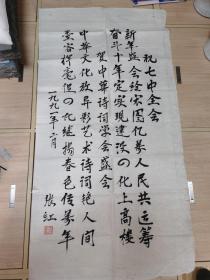 祝七中全会
新年盛会经宏图亿万人民共运筹
奋斗十年定实现建设四化上高楼
贺中华诗词学会盛会
中华文化放异彩艺术诗词艳人间
泼墨挥毫促四化继扬春色传万年
一九九一年一月
张红